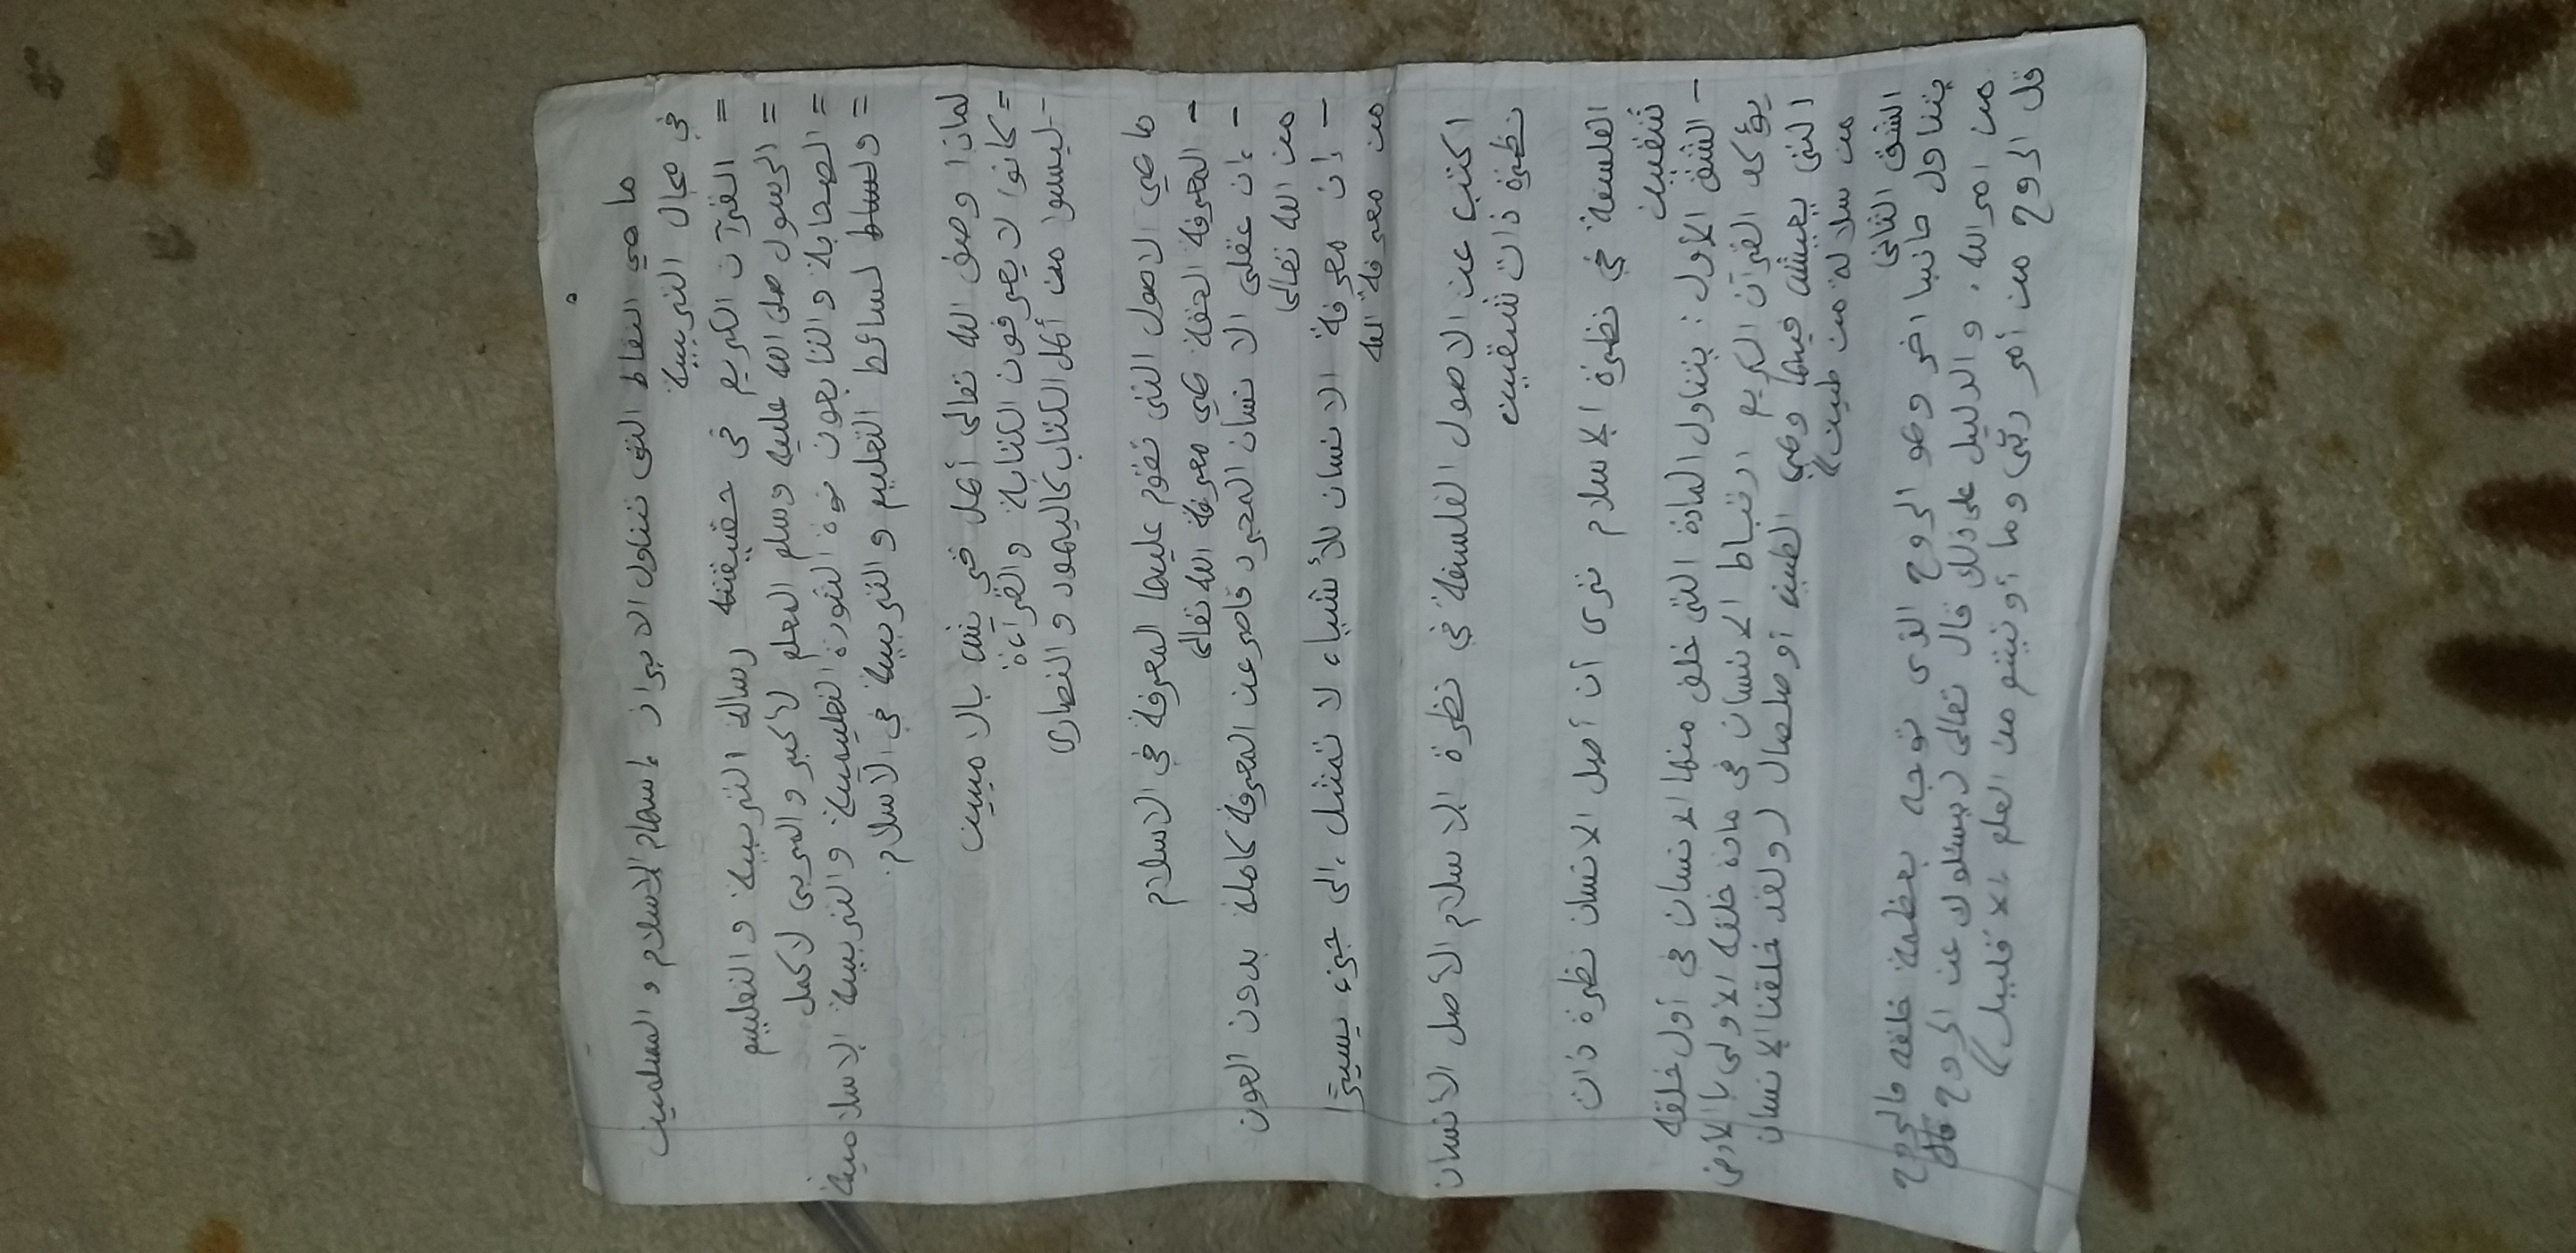 ما هي النقاط التى تتناول الابراز إسهام الإسلام و المسلمين
في مجال التربية
= القرآن الكريم فى حقيقته رسالة التربية و التعليم
= الرسول صلى الله عليه وسلم المعلم لأكبر و المربى لاكمل
= الصحابة و التابعون نوة الثورة التعليمية و التربية الإسلامية
= ولساط لسائط التعليم و التربية في الآسلام
لماذا وصف الله تعالى أهل بالاميين
= كانوا لا يعرفون الكتابة والقراءة
- ليسوا من أهل الكتاب كاليهود و النصارى
ما هي الاصول التى تقوم عليها المعرفة في الاسلام
- المعرفة الحقة هي معرفة الله تعالى
- إن عقلى الانسان المجرد قاصر عن المعرفة كاملة بدون العون
من الله تعالى
- إن معرفة الانسان للأشياء لا تمثل إلى جزء يسيرًا
من معرفة الله
اكتب عن الاصول الفلسفة في نظرة الاسلام الأصل الانسان
نظرة ذات شقيين
الفلسفة في نظرة الإسلام ترى أن أصل الانسان نظرة ذات
شقيين
- الشق الأول : يتناول المادة التى خلق منها الانسان فى أول خلقه
يؤكد القرآن الكريم ارتباط الانسان فى مادة خلقه الاولى بالأرض
التى يعيش فيها وهي الطين أو صلصال لو لقد خلقنا الإنسان
من سلالة من طين))
الشق الثانى
يتناول جانبا اخر وهو الروح الذى توجه بعظمة خلقه فالروح
من امر الله. والدليل على ذلك قال تعالى (يسئلوك عن الروح
قل الروح من أمر ربّى وما أوتيتو من العلم إلا قليل))